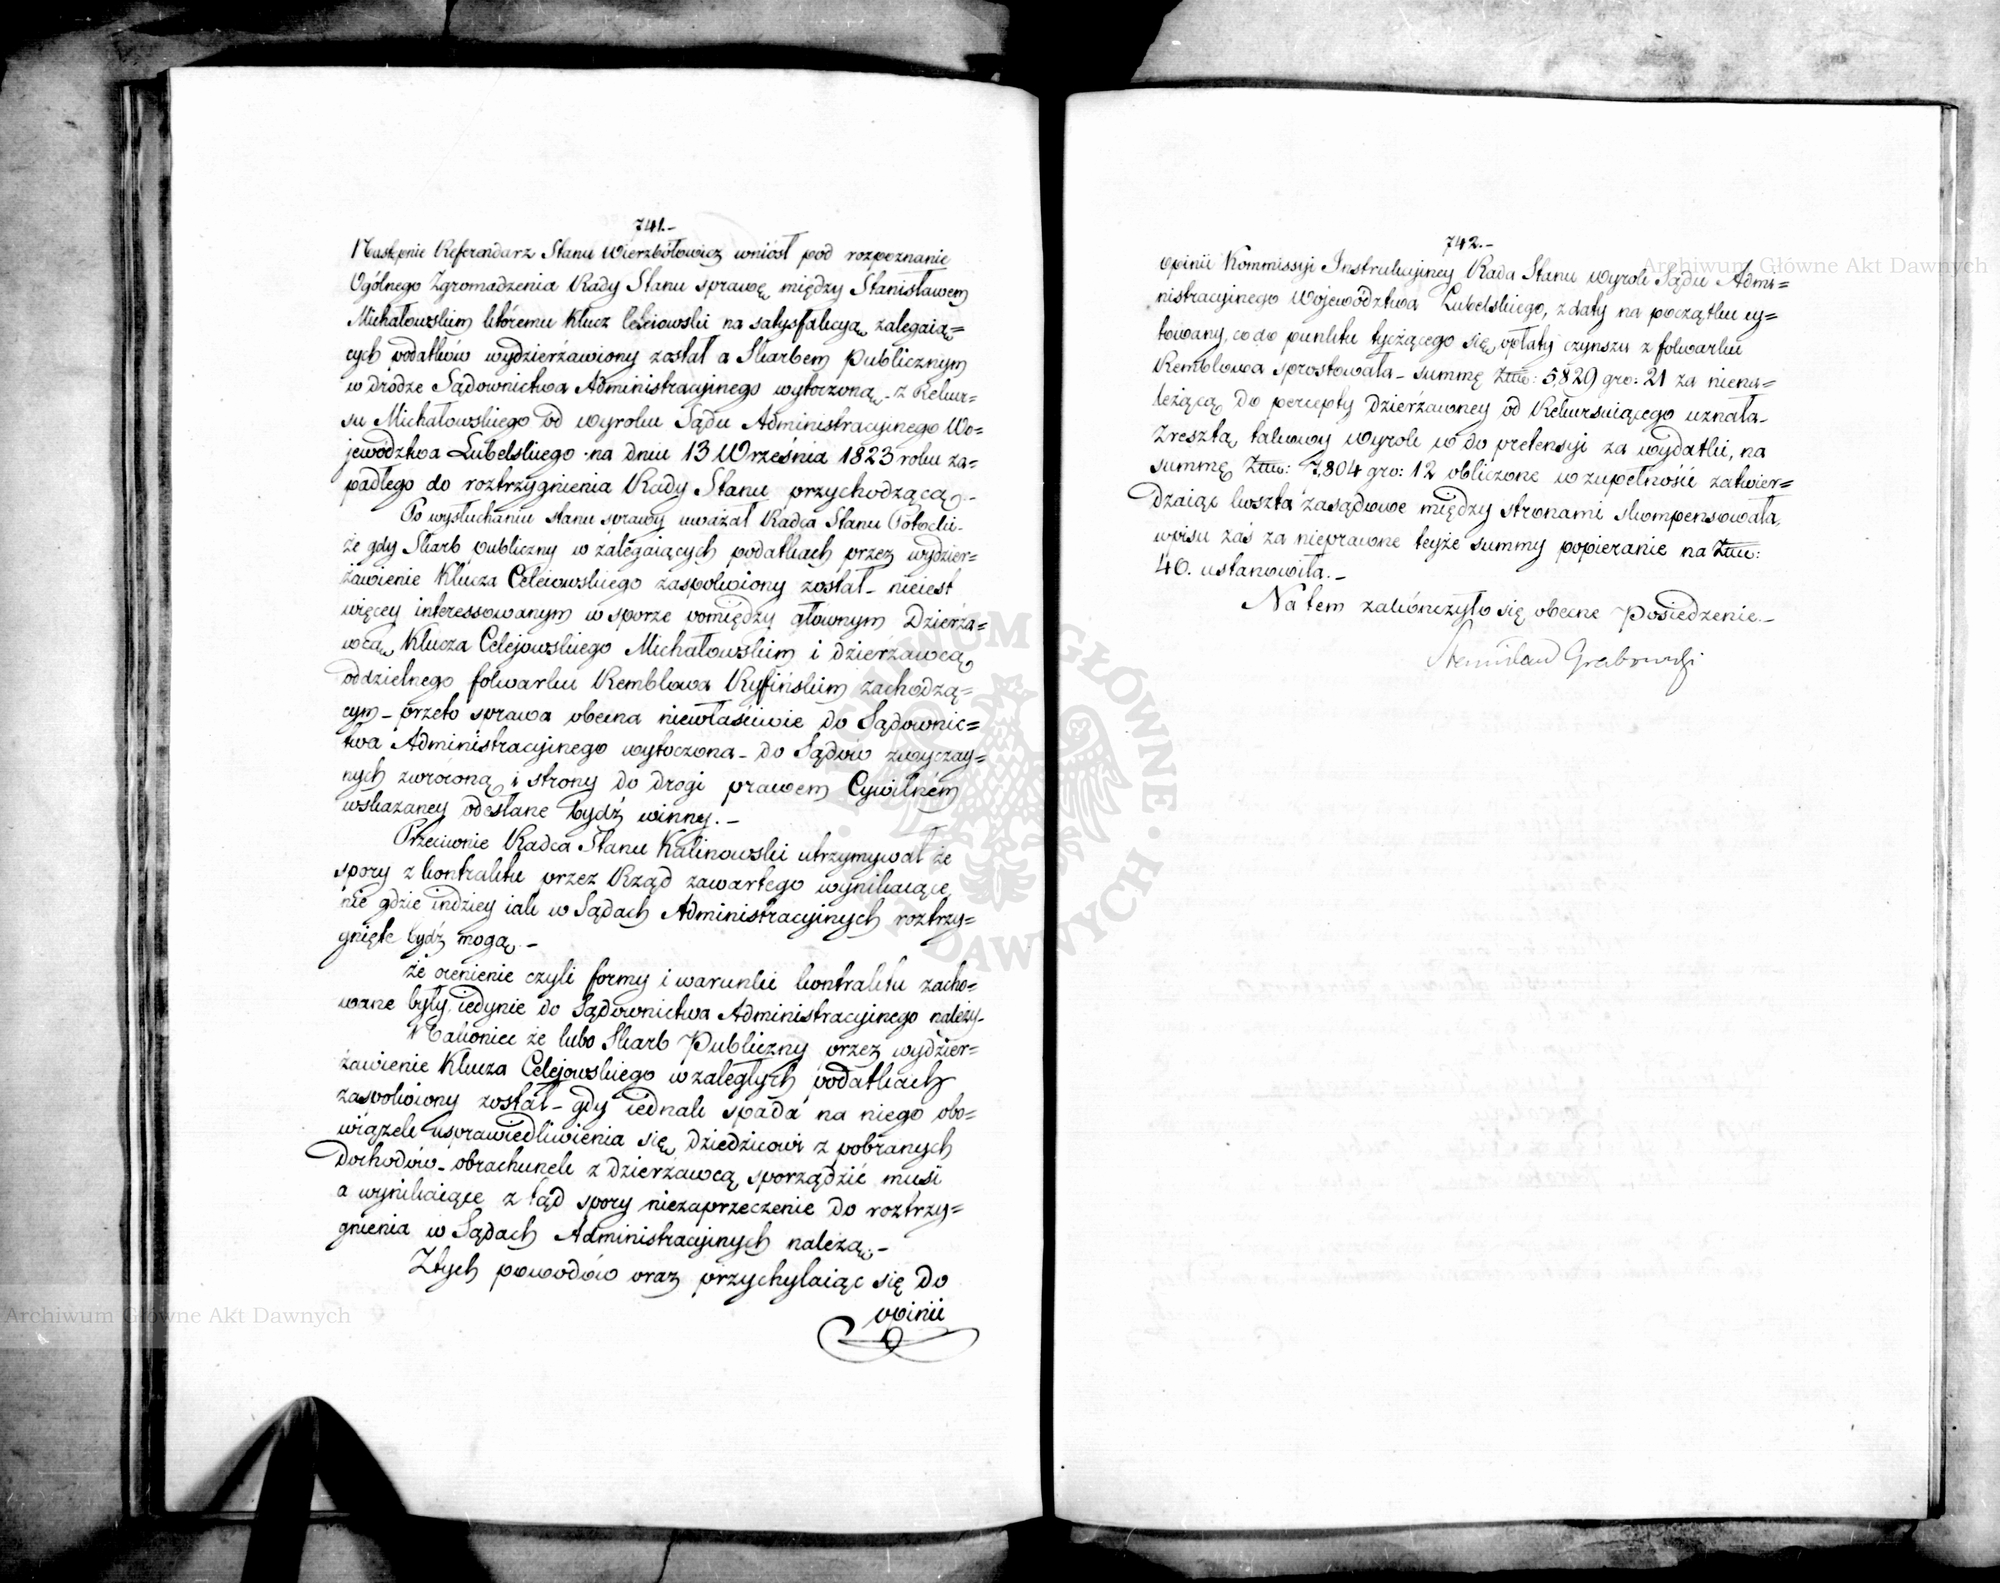 741.-
Następnie Referendarz Stanu Wierzbołowicz wniosł pod rozpoznanie
Ogólnego Zgromadzenia Rady Stanu sprawę między Stanisławem
Michałowskim któremu Klucz Celeiowski na satysfakcyą zalegaią=
cych podatków wydzierżawiony został a Skarbem Publicznym
w drodze Sądownictwa Administracyjnego wytoczoną - z Rekur=
su Michałowskiego od wyroku Sądu Administracyjnego Wo=
jewództwa Lubelskiego na dniu 13 Września 1823 roku za=
padłego do roztrzygnienia Rady Stanu przychodzącą.-
Po wysłuchaniu stanu sprawy uważał Radca Stanu Potocki-
że gdy Skarb publiczny w zalegaiących podatkach przez wydzier=
żawienie Klucza Celeiowskiego zaspokoiony został - nieiest
więcey interessowanym w sporze pomiędzy głównym Dzierża=
wcą Klucza Celejowskiego Michałowskim i dzierżawcą
oddzielnego folwarku Rembłowa Ryfińskim zachodzą=
cym - przeto sprawa obecna niewłaściwie do Sądownic=
twa Administracyjnego wytoczona - do Sądów zwyczay=
nych zwróconą i strony do drogi prawem Cywilném
wskazaney odesłane bydź winny.-
Przeciwnie Radca Stanu Kalinowski utrzymywał że
spory z kontraktu przez Rząd zawartego wynikaiące
nie gdzie indziey iak w Sądach Administracyjnych roztrzy=
gnięte bydź mogą.-
że ocenienie czyli formy i warunki kontraktu zacho=
wane były iedynie do Sądownictwa Administracyjnego należy-
Nakoniec że lubo Skarb Publiczny przez wydzier=
żawienie Klucza Celejowskiego w zaległych podatkach
zaspokoiony został - gdy iednak spada na niego obo=
wiązek usprawiedliwienia się Dziedzicowi z pobranych
Dochodów - obrachunek z dzierżawcą sporządzić musi
a wynikaiące z tąd spory niezaprzeczenie do roztrzy=
gnienia w Sądach Administracyjnych należą.-
Z tych powodów oraz przychylaiąc się do
opinii
742.-
opinii Kommissyi Instrukcyiney Rada Stanu wyrok Sądu Admi=
nistracyjnego Województwa Lubelskiego, z daty na początku cy=
towany, co do punktu tyczącego się opłaty czynszu z folwarku
Rembłowa sprostowała - summę Złtw: 5,829 gro: 21 za niena=
leżącą do percepty dzierżawney od Rekursuiącego uznała-
Zresztą takowy wyrok w do pretensyi za wydatki, na
summę Złtw: 7,804 gro: 12 obliczone w zupełności zatwier=
dzaiąc koszta zasądowe między stronami skompensowała,
wpisu zaś za nieprawne teyże summy popieranie na Złtw:
40. ustanowiła.-
Na tem zakończyło się obecne Posiedzenie.-
Stanisław Grabowski
Archiwum Główne Akt Dawnych
Archiwum Główne Akt Dawnych
ARCHIWUM GŁÓWNE AKT DAWNYCH